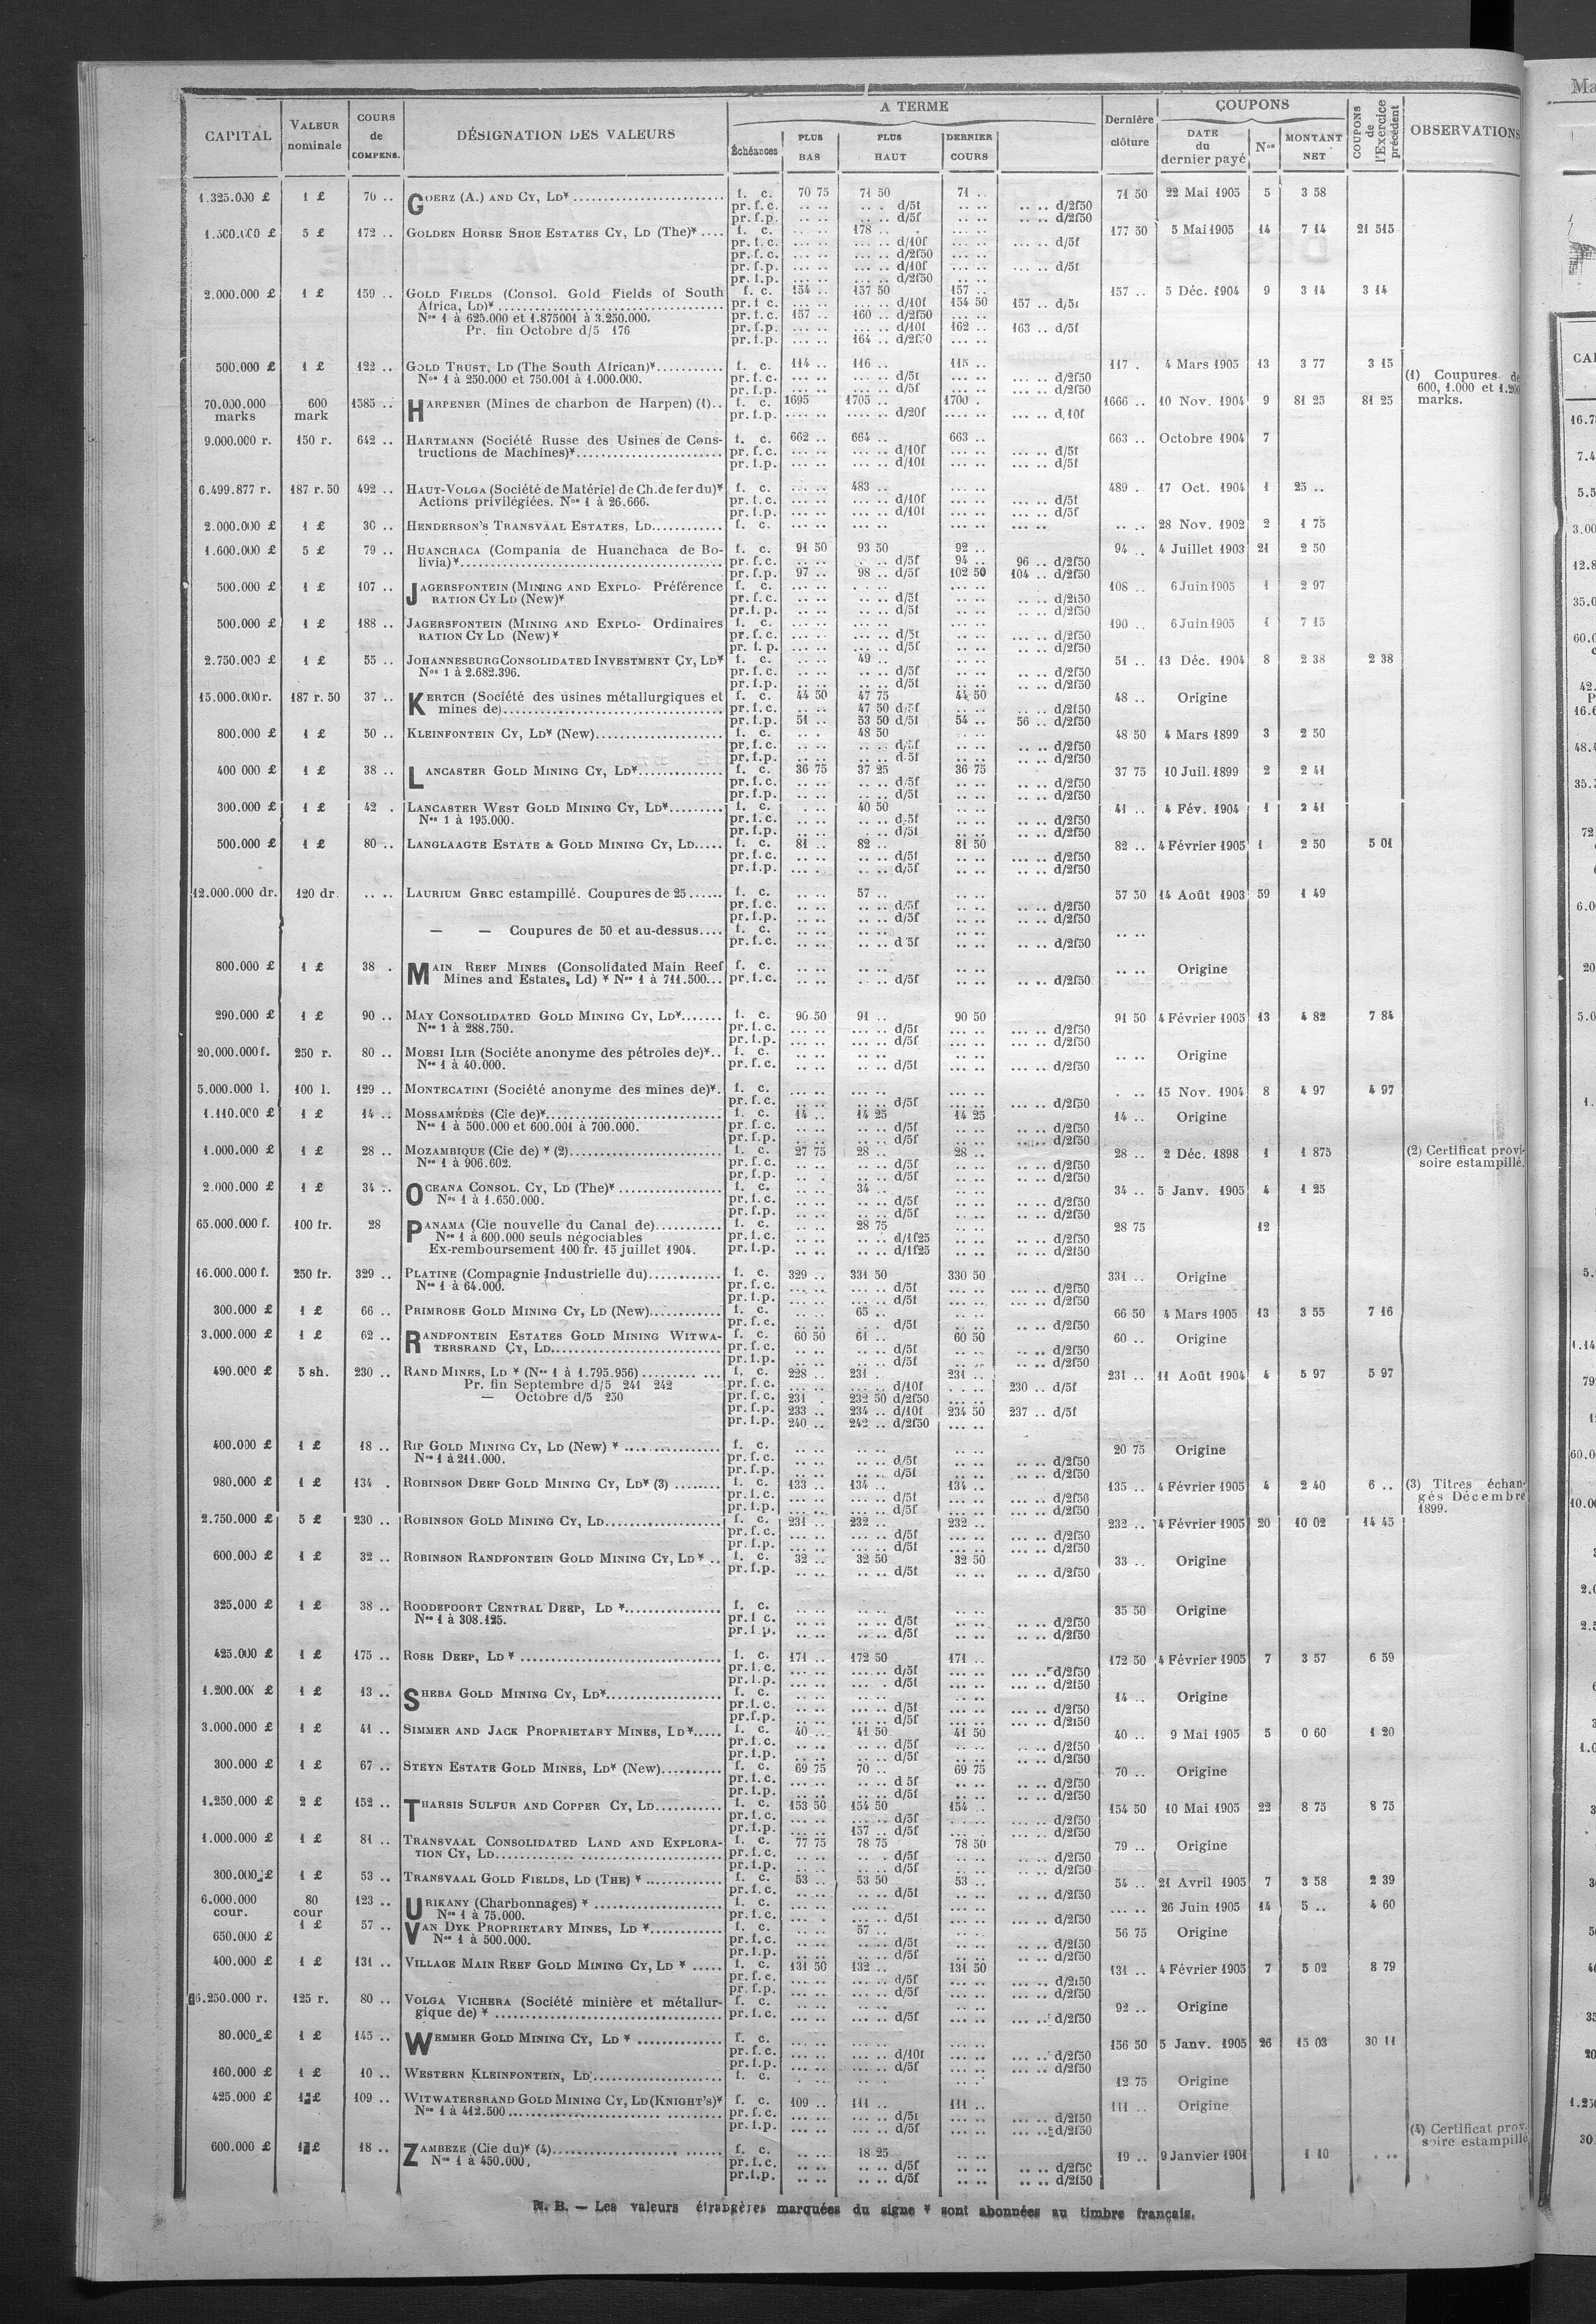 A TERME
COUPONS
CAPITAL | VALEUR nominale | COURS de COMPENS. | DÉSIGNATION DES VALEURS | Échéances | PLUS BAS | PLUS HAUT | DERNIER COURS | Dernière clôture | DATE du dernier payé | Nos | MONTANT NET | COUPONS de l'Exercice précédent | OBSERVATIONS
1.325.000 £ | 1 £ | 70 .. | GOERZ (A.) AND CY, LD* | f. c. | 70 75 | 71 50 | 71 .. | 71 50 | 22 Mai 1905 | 5 | 3 58
pr. f. c. d/5f d/2f50
pr. f. p. d/5f d/2f50
1.500.000 £ | 5 £ | 172 .. | GOLDEN HORSE SHOE ESTATES CY, LD (The)* | f. c. | 178 .. | 177 50 | 5 Mai 1905 | 14 | 7 14 | 21 515
pr. f. c. d/10f d/5f
pr. f. c. d/2f50
pr. f. p. d/10f d/5f
pr. f. p. d/2f50
2.000.000 £ | 1 £ | 159 .. | GOLD FIELDS (Consol. Gold Fields of South | f. c. | 154 .. | 157 50 | 157 .. | 157 .. | 5 Déc. 1904 | 9 | 3 14 | 3 14
Africa, LD)* pr. f. c. d/10f 154 50 157 .. d/5f
Nos 1 à 625.000 et 1.875001 à 3.250.000. pr. f. c. 157 .. 160 .. d/2f50
Pr. fin Octobre d/5 176 pr. f. p. d/10f 162 .. 163 .. d/5f
pr. f. p. 164 .. d/2f50
500.000 £ | 1 £ | 122 .. | GOLD TRUST, LD (The South African)* | f. c. | 114 .. | 116 .. | 115 .. | 117 . | 4 Mars 1905 | 13 | 3 77 | 3 15
Nos 1 à 250.000 et 750.001 à 1.000.000. pr. f. c. d/5f d/2f50 (1) Coupures de
pr. f. p. d/5f d/2f50 600, 1.000 et 1.200
70.000.000 marks | 600 mark | 1585 .. | HARPENER (Mines de charbon de Harpen) (1) | f. c. | 1695 | 1705 .. | 1700 . | 1666 .. | 10 Nov. 1904 | 9 | 81 25 | 81 25 | marks.
pr. f. p. d/20f d/10f
9.000.000 r. | 150 r. | 642 .. | HARTMANN (Société Russe des Usines de Cons- | f. c. | 662 .. | 664 .. | 663 .. | 663 .. | Octobre 1904 | 7
tructions de Machines)* pr. f. c. d/10f d/5f
pr. f. p. d/10f d/5f
6.499.877 r. | 187 r. 50 | 492 .. | HAUT-VOLGA (Société de Matériel de Ch. de fer du)* | f. c. | 483 .. | 489 . | 17 Oct. 1904 | 1 | 25 ..
Actions privilégiées. Nos 1 à 26.666. pr. f. c. d/10f d/5f
pr. f. p. d/10f d/5f
2.000.000 £ | 1 £ | 30 .. | HENDERSON'S TRANSVAAL ESTATES, LD | f. c. | 28 Nov. 1902 | 2 | 1 75
1.600.000 £ | 5 £ | 79 .. | HUANCHACA (Compania de Huanchaca de Bo- | f. c. | 91 50 | 93 50 | 92 .. | 94 .. | 4 Juillet 1903 | 21 | 2 50
livia)* pr. f. c. d/5f 94 .. 96 .. d/2f50
pr. f. p. 97 .. 98 .. d/5f 102 50 104 .. d/2f50
500.000 £ | 1 £ | 107 .. | JAGERSFONTEIN (MINING AND EXPLO- Préférence | f. c. | 108 .. | 6 Juin 1905 | 1 | 2 97
RATION CY LD (New)* pr. f. c. d/5f d/2f50
pr. f. p. d/5f d/2f50
500.000 £ | 1 £ | 188 .. | JAGERSFONTEIN (MINING AND EXPLO- Ordinaires | f. c. | 190 .. | 6 Juin 1905 | 1 | 7 15
RATION CY LD (New)* pr. f. c. d/5f d/2f50
pr. f. p. d/5f d/2f50
2.750.000 £ | 1 £ | 55 .. | JOHANNESBURG CONSOLIDATED INVESTMENT CY, LD* | f. c. | 49 .. | 51 .. | 13 Déc. 1904 | 8 | 2 38 | 2 38
Nos 1 à 2.682.396. pr. f. c. d/5f d/2f50
pr. f. p. d/5f d/2f50
15.000.000 r. | 187 r. 50 | 37 .. | KERTCH (Société des usines métallurgiques et | f. c. | 44 50 | 47 75 | 44 50 | 48 .. | Origine
mines de) pr. f. c. 47 50 d/5f d/2f50
pr. f. p. 51 .. 53 50 d/5f 54 .. 56 .. d/2f50
800.000 £ | 1 £ | 50 .. | KLEINFONTEIN CY, LD* (New) | f. c. | 48 50 | 48 50 | 4 Mars 1899 | 3 | 2 50
pr. f. c. d/5f d/2f50
pr. f. p. d/5f d/2f50
400 000 £ | 1 £ | 38 .. | LANCASTER GOLD MINING CY, LD* | f. c. | 36 75 | 37 25 | 36 75 | 37 75 | 10 Juil. 1899 | 2 | 2 41
pr. f. c. d/5f d/2f50
pr. f. p. d/5f d/2f50
300.000 £ | 1 £ | 42 . | LANCASTER WEST GOLD MINING CY, LD* | f. c. | 40 50 | 41 .. | 4 Fév. 1904 | 1 | 2 41
Nos 1 à 195.000. pr. f. c. d/5f d/2f50
pr. f. p. d/5f d/2f50
500.000 £ | 1 £ | 80 .. | LANGLAAGTE ESTATE & GOLD MINING CY, LD | f. c. | 81 .. | 82 .. | 81 50 | 82 .. | 4 Février 1905 | 1 | 2 50 | 5 01
pr. f. c. d/5f d/2f50
pr. f. p. d/5f d/2f50
12.000.000 dr. | 120 dr. | .. .. | LAURIUM GREC estampillé. Coupures de 25 | f. c. | 57 .. | 57 50 | 14 Août 1903 | 59 | 1 49
pr. f. c. d/5f d/2f50
pr. f. p. d/5f d/2f50
— — Coupures de 50 et au-dessus.... f. c.
pr. f. c. d/5f d/2f50
800.000 £ | 1 £ | 38 . | MAIN REEF MINES (Consolidated Main Reef | f. c. | Origine
Mines and Estates, Ld) * Nos 1 à 711.500... pr. f. c. d/5f d/2f50
290.000 £ | 1 £ | 90 .. | MAY CONSOLIDATED GOLD MINING CY, LD* | f. c. | 90 50 | 91 .. | 90 50 | 91 50 | 4 Février 1905 | 13 | 4 82 | 7 84
Nos 1 à 288.750. pr. f. c. d/5f d/2f50
pr. f. p. d/5f d/2f50
20.000.000 f. | 250 r. | 80 .. | MOESI ILIR (Sociéte anonyme des pétroles de)* | f. c. | Origine
Nos 1 à 40.000. pr. f. c. d/5f d/2f50
5.000.000 l. | 100 l. | 129 .. | MONTECATINI (Société anonyme des mines de)* | f. c. | 15 Nov. 1904 | 8 | 4 97 | 4 97
pr. f. c. d/5f d/2f50
1.110.000 £ | 1 £ | 14 .. | MOSSAMÉDÉS (Cie de)* | f. c. | 14 .. | 14 25 | 14 25 | 14 .. | Origine
Nos 1 à 500.000 et 600.001 à 700.000. pr. f. c. d/5f d/2f50
pr. f. p. d/5f d/2f50
1.000.000 £ | 1 £ | 28 .. | MOZAMBIQUE (Cie de) * (2) | f. c. | 27 75 | 28 .. | 28 .. | 28 .. | 2 Déc. 1898 | 1 | 1 875 | (2) Certificat provi-
Nos 1 à 906.602. pr. f. c. d/5f d/2f50 soire estampillé.
pr. f. p. d/5f d/2f50
2.000.000 £ | 1 £ | 34 .. | OCEANA CONSOL. CY, LD (The)* | f. c. | 34 .. | 34 .. | 5 Janv. 1905 | 4 | 1 25
Nos 1 à 1.650.000. pr. f. c. d/5f d/2f50
pr. f. p. d/5f d/2f50
65.000.000 f. | 100 fr. | 28 | PANAMA (Cie nouvelle du Canal de) | f. c. | 28 75 | 28 75 | 12
Nos 1 à 600.000 seuls négociables pr. f. c. d/1f25 d/2f50
Ex-remboursement 100 fr. 15 juillet 1904. pr. f. p. d/1f25 d/2f50
16.000.000 f. | 250 fr. | 329 .. | PLATINE (Compagnie Industrielle du) | f. c. | 329 .. | 331 50 | 330 50 | 331 .. | Origine
Nos 1 à 64.000. pr. f. c. d/5f d/2f50
pr. f. p. d/5f d/2f50
300.000 £ | 1 £ | 66 .. | PRIMROSE GOLD MINING CY, LD (New) | f. c. | 65 .. | 66 50 | 4 Mars 1905 | 13 | 3 55 | 7 16
pr. f. c. d/5f d/2f50
3.000.000 £ | 1 £ | 62 .. | RANDFONTEIN ESTATES GOLD MINING WITWA- | f. c. | 60 50 | 61 .. | 60 50 | 60 .. | Origine
TERSRAND CY, LD pr. f. c. d/5f d/2f50
pr. f. p. d/5f d/2f50
490.000 £ | 5 sh. | 230 .. | RAND MINES, LD * (Nos 1 à 1.795.956) | f. c. | 228 .. | 231 . | 231 .. | 231 .. | 11 Août 1904 | 4 | 5 97 | 5 97
Pr. fin Septembre d/5 241 242 pr. f. c. d/10f 230 .. d/5f
— Octobre d/5 250 pr. f. c. 231 . 232 50 d/2f50
pr. f. p. 233 .. 234 .. d/10f 234 50 237 .. d/5f
pr. f. p. 240 .. 242 .. d/2f50
400.000 £ | 1 £ | 18 .. | RIP GOLD MINING CY, LD (New) * | f. c. | 20 75 | Origine
Nos 1 à 211.000. pr. f. c. d/5f d/2f50
pr. f. p. d/5f d/2f50
980.000 £ | 1 £ | 134 . | ROBINSON DEEP GOLD MINING CY, LD* (3) | f. c. | 133 .. | 134 .. | 134 .. | 135 .. | 4 Février 1905 | 4 | 2 40 | 6 .. | (3) Titres échan-
pr. f. c. d/5f d/2f50 gés Décembre
pr. f. p. d/5f d/2f50 1899.
2.750.000 £ | 5 £ | 230 .. | ROBINSON GOLD MINING CY, LD | f. c. | 231 .. | 232 .. | 232 .. | 232 .. | 4 Février 1905 | 20 | 10 02 | 14 45
pr. f. c. d/5f d/2f50
pr. f. p. d/5f d/2f50
600.000 £ | 1 £ | 32 .. | ROBINSON RANDFONTEIN GOLD MINING CY, LD * | f. c. | 32 .. | 32 50 | 32 50 | 33 .. | Origine
pr. f. p. d/5f d/2f50
325.000 £ | 1 £ | 38 .. | ROODEPOORT CENTRAL DEEP, LD * | f. c. | 35 50 | Origine
Nos 1 à 308.125. pr. f. c. d/5f d/2f50
pr. f. p. d/5f d/2f50
425.000 £ | 1 £ | 175 .. | ROSE DEEP, LD * | f. c. | 171 .. | 172 50 | 171 .. | 172 50 | 4 Février 1905 | 7 | 3 57 | 6 59
pr. f. c. d/5f d/2f50
pr. f. p. d/5f d/2f50
1.200.000 £ | 1 £ | 13 .. | SHEBA GOLD MINING CY, LD* | f. c. | 14 .. | Origine
pr. f. c. d/5f d/2f50
pr. f. p. d/5f d/2f50
3.000.000 £ | 1 £ | 41 .. | SIMMER AND JACK PROPRIETARY MINES, LD* | f. c. | 40 .. | 41 50 | 41 50 | 40 .. | 9 Mai 1905 | 5 | 0 60 | 1 20
pr. f. c. d/5f d/2f50
pr. f. p. d/5f d/2f50
300.000 £ | 1 £ | 67 .. | STEYN ESTATE GOLD MINES, LD* (New) | f. c. | 69 75 | 70 .. | 69 75 | 70 .. | Origine
pr. f. c. d 5f d/2f50
pr. f. p. d/5f d/2f50
1.250.000 £ | 2 £ | 152 .. | THARSIS SULFUR AND COPPER CY, LD | f. c. | 153 50 | 154 50 | 154 .. | 154 50 | 10 Mai 1905 | 22 | 8 75 | 8 75
pr. f. c. d/5f d/2f50
pr. f. p. 157 .. d/5f d/2f50
1.000.000 £ | 1 £ | 81 .. | TRANSVAAL CONSOLIDATED LAND AND EXPLORA- | f. c. | 77 75 | 78 75 | 78 50 | 79 .. | Origine
TION CY, LD pr. f. c. d/5f d/2f50
pr. f. p. d/5f d/2f50
300.000 £ | 1 £ | 53 .. | TRANSVAAL GOLD FIELDS, LD (THE) * | f. c. | 53 .. | 53 50 | 53 .. | 54 .. | 21 Avril 1905 | 7 | 3 58 | 2 39
pr. f. c. d/5f d/2f50
6.000.000 cour. | 80 cour | 123 .. | URIKANY (Charbonnages) * | f. c. | 26 Juin 1905 | 14 | 5 .. | 4 60
Nos 1 à 75.000. pr. f. c. d/5f d/2f50
650.000 £ | 1 £ | 57 .. | VAN DYK PROPRIETARY MINES, LD * | f. c. | 57 .. | 56 75 | Origine
Nos 1 à 500.000. pr. f. c. d/5f d/2f50
pr. f. p. d/5f d/2f50
400.000 £ | 1 £ | 131 .. | VILLAGE MAIN REEF GOLD MINING CY, LD * | f. c. | 131 50 | 132 .. | 131 50 | 131 .. | 4 Février 1905 | 7 | 5 02 | 8 79
pr. f. c. d/5f d/2f50
pr. f. p. d/5f d/2f50
6.250.000 r. | 125 r. | 80 .. | VOLGA VICHERA (Société minière et métallur- | f. c. | 92 .. | Origine
gique de) * pr. f. c. d/5f d/2f50
80.000 £ | 1 £ | 145 .. | WEMMER GOLD MINING CY, LD * | f. c. | 156 50 | 5 Janv. 1905 | 26 | 15 03 | 30 11
pr. f. c. d/10f d/2f50
pr. f. p. d/5f d/2f50
160.000 £ | 1 £ | 10 .. | WESTERN KLEINFONTEIN, LD | f. c. | 12 75 | Origine
425.000 £ | 1 £ | 109 .. | WITWATERSRAND GOLD MINING CY, LD (KNIGHT'S)* | f. c. | 109 .. | 111 .. | 111 .. | 111 .. | Origine
Nos 1 à 412.500 pr. f. c. d/5f d/2f50
pr. f. p. d/5f d/2f50 (4) Certificat prov.
600.000 £ | 1 £ | 18 .. | ZAMBEZE (Cie du)* (4) | f. c. | 18 25 | 19 .. | 9 Janvier 1901 | 1 10 | soire estampillé
Nos 1 à 450.000. pr. f. c. d/5f d/2f50
pr. f. p. d/5f d/2f50
N. B. — Les valeurs étrangères marquées du signe * sont abonnées au timbre français.